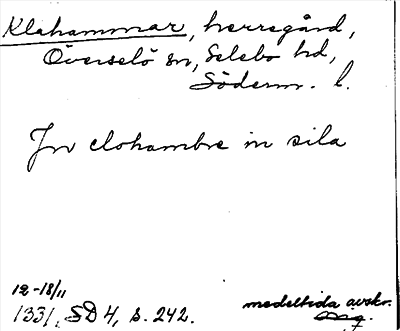 Klahammar, herregård,
Överselö sn, Selebo hd,
Söderm. l.
In clohambre in sila
12-18/11
1331, SD 4, s. 242.
medeltida avskr.